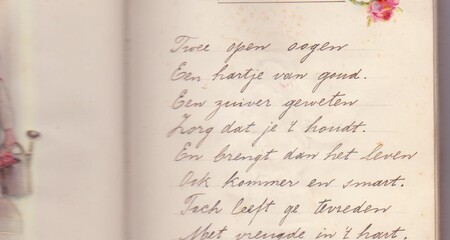 Twee open oogen
Een hartje van goud.
Een zuiver geweten
Zorg dat je 't houdt.
En brengt dan het leven
Ook kommer en smart.
Toch leeft ge tevreden
Met vreugde in 't hart.